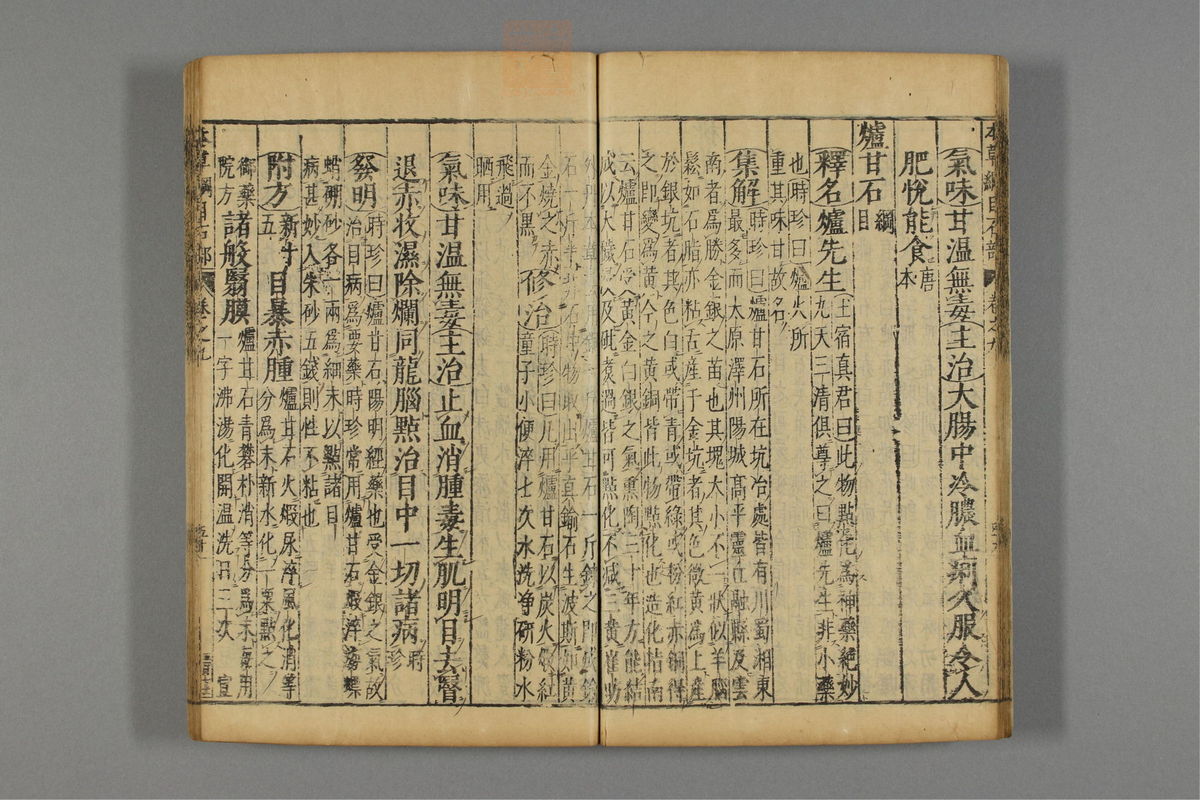 本草綱目石部 卷之九
氣味甘溫無毒主治大腸中冷膿血痢久服令人
肥悅能食唐本
爐甘石綱目
釋名爐先生土宿真君曰此物點化為神藥絕妙
九天三清俱尊之曰爐先生非小藥
也時珍曰爐火所
重其味甘故名
集解時珍曰爐甘石所在坑冶處皆有川蜀湘東
最多而太原澤州陽城高平靈丘融縣及雲
南者爲勝金銀之苗也其塊大小不一狀似羊腦
鬆如石脂亦粘舌産于金坑者其色微黃爲上産
於銀坑者其色白或帶青或帶綠或粉紅赤銅得
之即變爲黃今之黃銅皆此物點化也造化指南
云爐甘石受黃金白銀之氣熏陶三十年方能結
成以大穢浸及砒煑過皆可點化不減三黃崔昉
外丹本草云用銅一斤爐甘石一斤鍊之即成鍮
石一斤半非石中物取出乎真鍮石生波斯如黃
金燒之赤
而不黑
修治時珍曰凡用爐甘石以炭火煅紅
童子小便淬七次水洗淨研粉水
飛過
晒用
氣味甘溫無毒主治止血消腫毒生肌明目去瞖
退赤收濕除爛同龍腦點治目中一切諸病時珍
發明時珍曰爐甘石陽明經藥也受金銀之氣故
治目病爲要藥時珍常用爐甘石煅淬海螵
蛸硼砂各一兩爲細末以點諸目
病甚妙入朱砂五錢則性不粘也
附方新十五目暴赤腫爐甘石火煅尿淬風化消等
分爲末新水化一粟點之
御藥院方諸般瞖膜爐甘石青礬朴消等分爲末每用
一字沸湯化開溫洗日三次 宣
本草綱目石部 卷之九